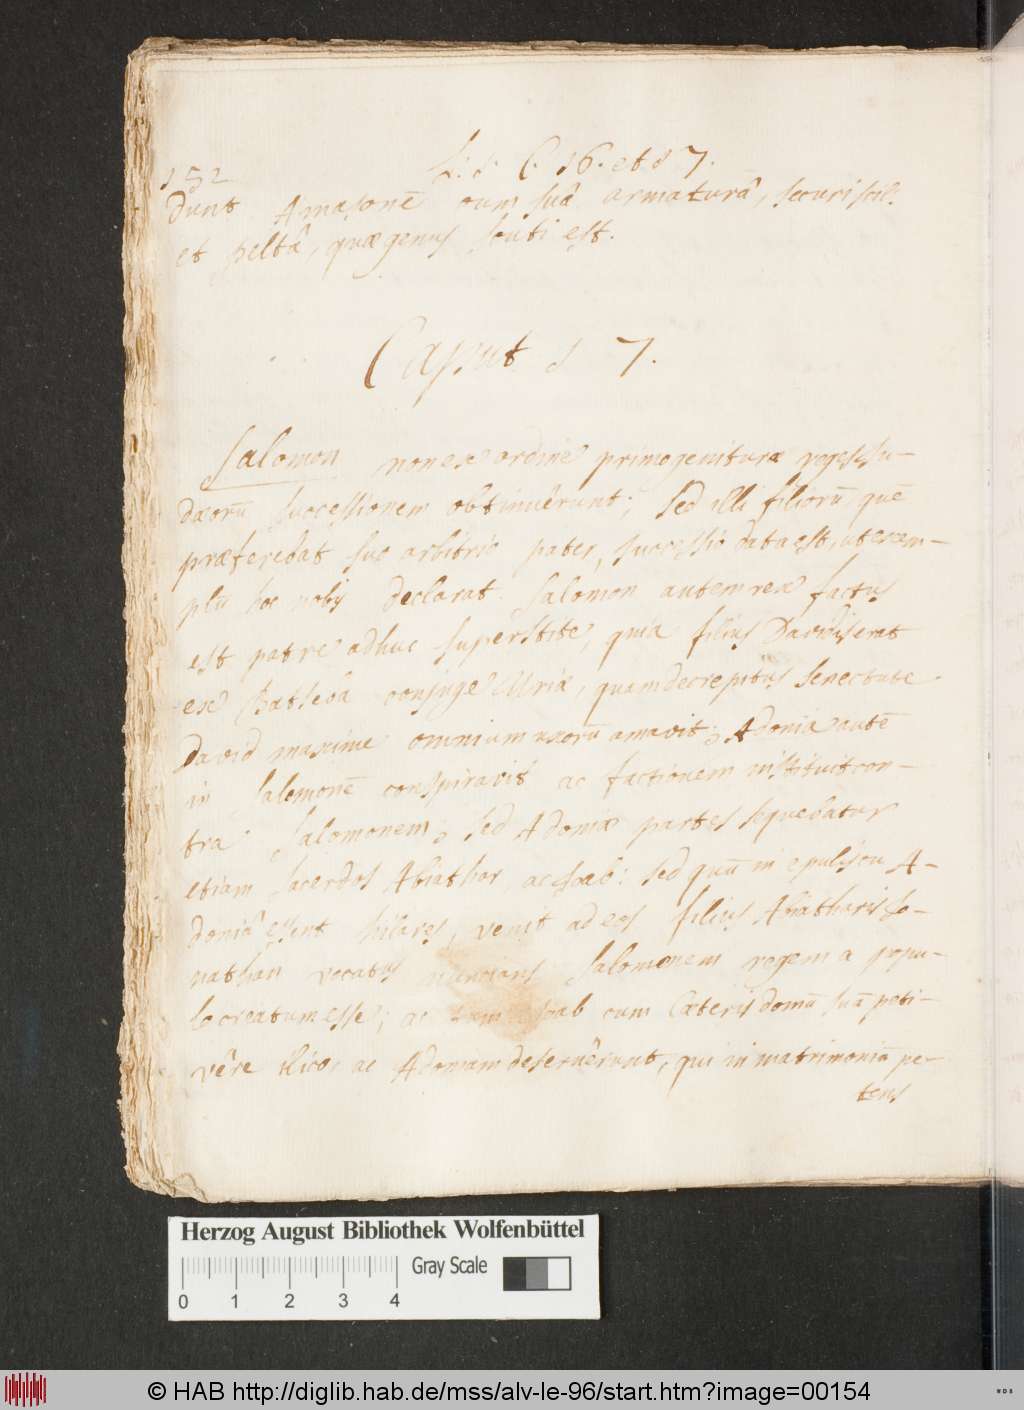 152
L. 1. C. 16. et 17.
dunt Amasonē cum suâ armaturâ, securi scil.
et peltâ, quæ genus scuti est.
Caput 17.
Salomon non ex ordine primogenituræ reges Ju-
dæorū successionem obtinuêrunt; sed illi filiorū, quē
præferebat suo arbitrio pater, successio data est, ut exem-
plū hoc nobis declarat. Salomon autem rex factus
est patre adhuc superstite, quia filius Davidis erat
ex Batseba conjuge Uriæ, quam decrepitus senectute
David maxime omnium uxorū amavit; Adonia autē
in Salomonē conspiravit ac factionem instituit con-
tra Salomonem; sed Adoniæ partes sequebatur
etiam sacerdos Abiathar, ac Joab: sed quū in epulis cū A-
doniâ essent hilares, venit ad eos filius Abiatharis Jo-
nathan vocatus nuncians Salomonem regem a popu-
lo creatum esse; ac tum Joab cum Cæteris domū suā peti-
vêre illico, ac Adoniam deseruêrunt, qui in matrimoniū pe-
tens
Herzog August Bibliothek Wolfenbüttel
Gray Scale
0 1 2 3 4
© HAB http://diglib.hab.de/mss/alv-le-96/start.htm?image=00154